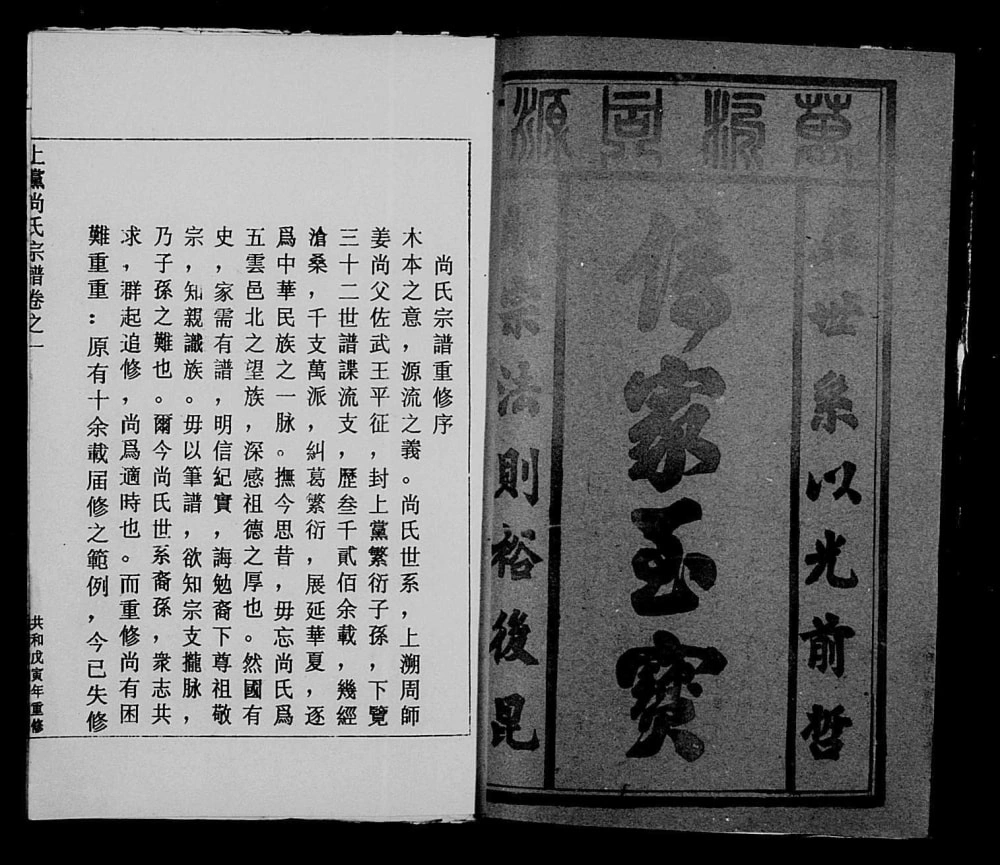 萬派同源
世系以光前哲
傳家至寶
宗法則裕後昆
尚氏宗譜重修序
木本之意，源流之義。尚氏世系，上溯周師
姜尚父佐武王平征，封上黨繁衍子孫，下覽
三十二世譜諜流支，歷叁千貳佰余載，幾經
滄桑，千支萬派，糾葛繁衍，展延華夏，逐
爲中華民族之一脉。撫今思昔，毋忘尚氏爲
五雲邑北之望族，深感祖德之厚也。然國有
史，家需有譜，明信紀實，誨勉裔下尊祖敬
宗，知親識族。毋以筆譜，欲知宗支攏脉，
乃子孫之難也。爾今尚氏世系裔孫，衆志共
求，群起追修，尚爲適時也。而重修尚有困
難重重：原有十余載届修之範例，今已失修
上黨尚氏宗譜卷之一
共和戊寅年重修